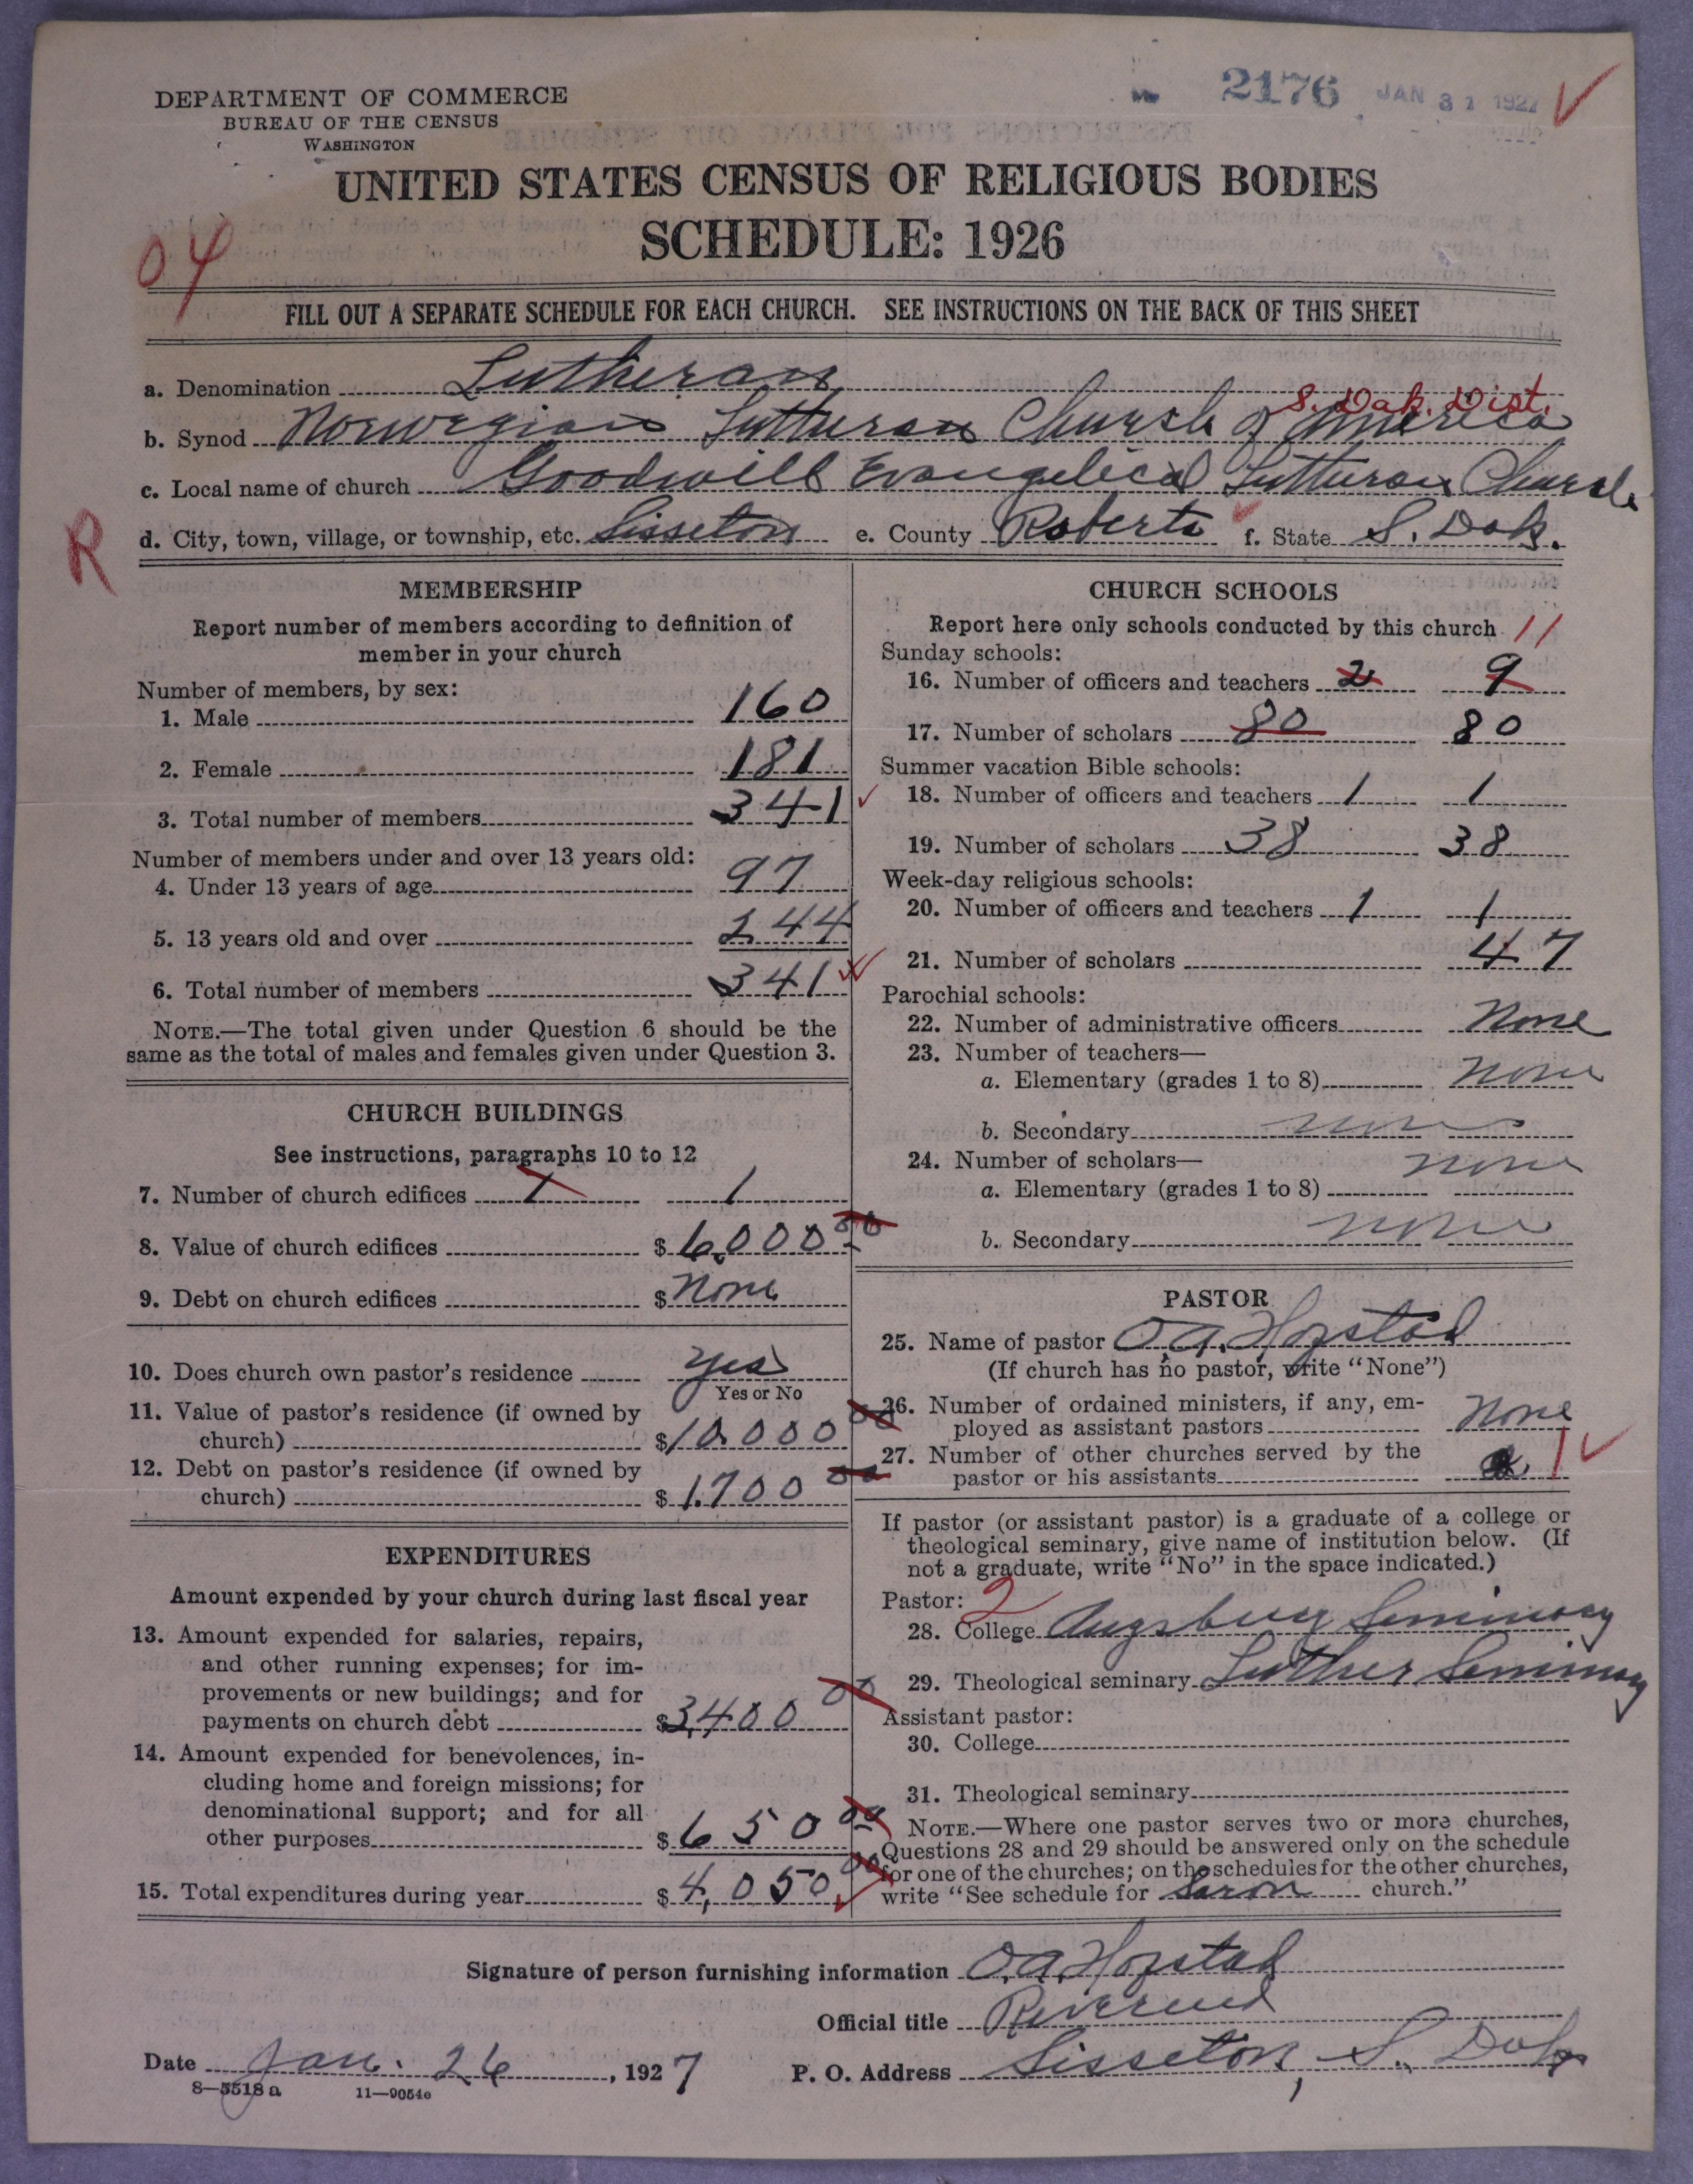 2176 JAN 31 1927
DEPARTMENT OF COMMERCE
BUREAU OF THE CENSUS
WASHINGTON
UNITED STATES CENSUS OF RELIGIOUS BODIES
SCHEDULE: 1926
04
FILL OUT A SEPARATE SCHEDULE FOR EACH CHURCH. SEE INSTRUCTIONS ON THE BACK OF THIS SHEET
a. Denomination Lutheran
S. Dak. Dist.
b. Synod Norwegian Lutheran Church of America
c. Local name of church Goodwill Evangelical Lutheran Church
R
d. City, town, village, or township, etc. Sisseton e. County Roberts f. State S. Dak.
MEMBERSHIP
Report number of members according to definition of
member in your church
Number of members, by sex:
1. Male 160
2. Female 181
3. Total number of members 341
Number of members under and over 13 years old:
4. Under 13 years of age 97
5. 13 years old and over 244
6. Total number of members 341
NOTE.—The total given under Question 6 should be the
same as the total of males and females given under Question 3.
CHURCH BUILDINGS
See instructions, paragraphs 10 to 12
7. Number of church edifices 1 1
8. Value of church edifices $ 6,000 00
9. Debt on church edifices $ None
10. Does church own pastor's residence yes
Yes or No
11. Value of pastor's residence (if owned by
church) $ 10,000 00
12. Debt on pastor's residence (if owned by
church) $ 1,700 00
EXPENDITURES
Amount expended by your church during last fiscal year
13. Amount expended for salaries, repairs,
and other running expenses; for im-
provements or new buildings; and for
payments on church debt $ 3,400 00
14. Amount expended for benevolences, in-
cluding home and foreign missions; for
denominational support; and for all
other purposes $ 650 00
15. Total expenditures during year $ 4,050 00
CHURCH SCHOOLS
Report here only schools conducted by this church 11
Sunday schools:
16. Number of officers and teachers 2 9
17. Number of scholars 80 80
Summer vacation Bible schools:
18. Number of officers and teachers 1 1
19. Number of scholars 38 38
Week-day religious schools:
20. Number of officers and teachers 1 1
21. Number of scholars 47
Parochial schools:
22. Number of administrative officers None
23. Number of teachers—
a. Elementary (grades 1 to 8) None
b. Secondary none
24. Number of scholars—
a. Elementary (grades 1 to 8) none
b. Secondary none
PASTOR
25. Name of pastor O.A. Hofstad
(If church has no pastor, write "None")
26. Number of ordained ministers, if any, em-
ployed as assistant pastors None
27. Number of other churches served by the
pastor or his assistants 1
If pastor (or assistant pastor) is a graduate of a college or
theological seminary, give name of institution below. (If
not a graduate, write "No" in the space indicated.)
Pastor: 2
28. College Augsburg Seminary
29. Theological seminary Luther Seminary
Assistant pastor:
30. College
31. Theological seminary
NOTE.—Where one pastor serves two or more churches,
Questions 28 and 29 should be answered only on the schedule
for one of the churches; on the schedules for the other churches,
write "See schedule for Saron church."
Signature of person furnishing information O.A. Hofstad
Official title Reverend
Date Jan. 26, 1927 P. O. Address Sisseton, S. Dak
8—5518a 11—9054e